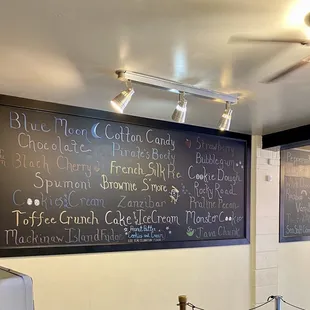 Blue Moon Cotton Candy Strawberry
Chocolate Pirate's Booty Bubblegum
Black Cherry French Silk Cookie Dough
Spumoni Brownie S'more Rocky Road
Cookies & Cream Zanzibar Praline Pecan
Toffee Crunch Cake Vice Cream Monster Cookie
Mackinaw Island Fudge Peanut Butter Java Chunk
Cookies and Cream